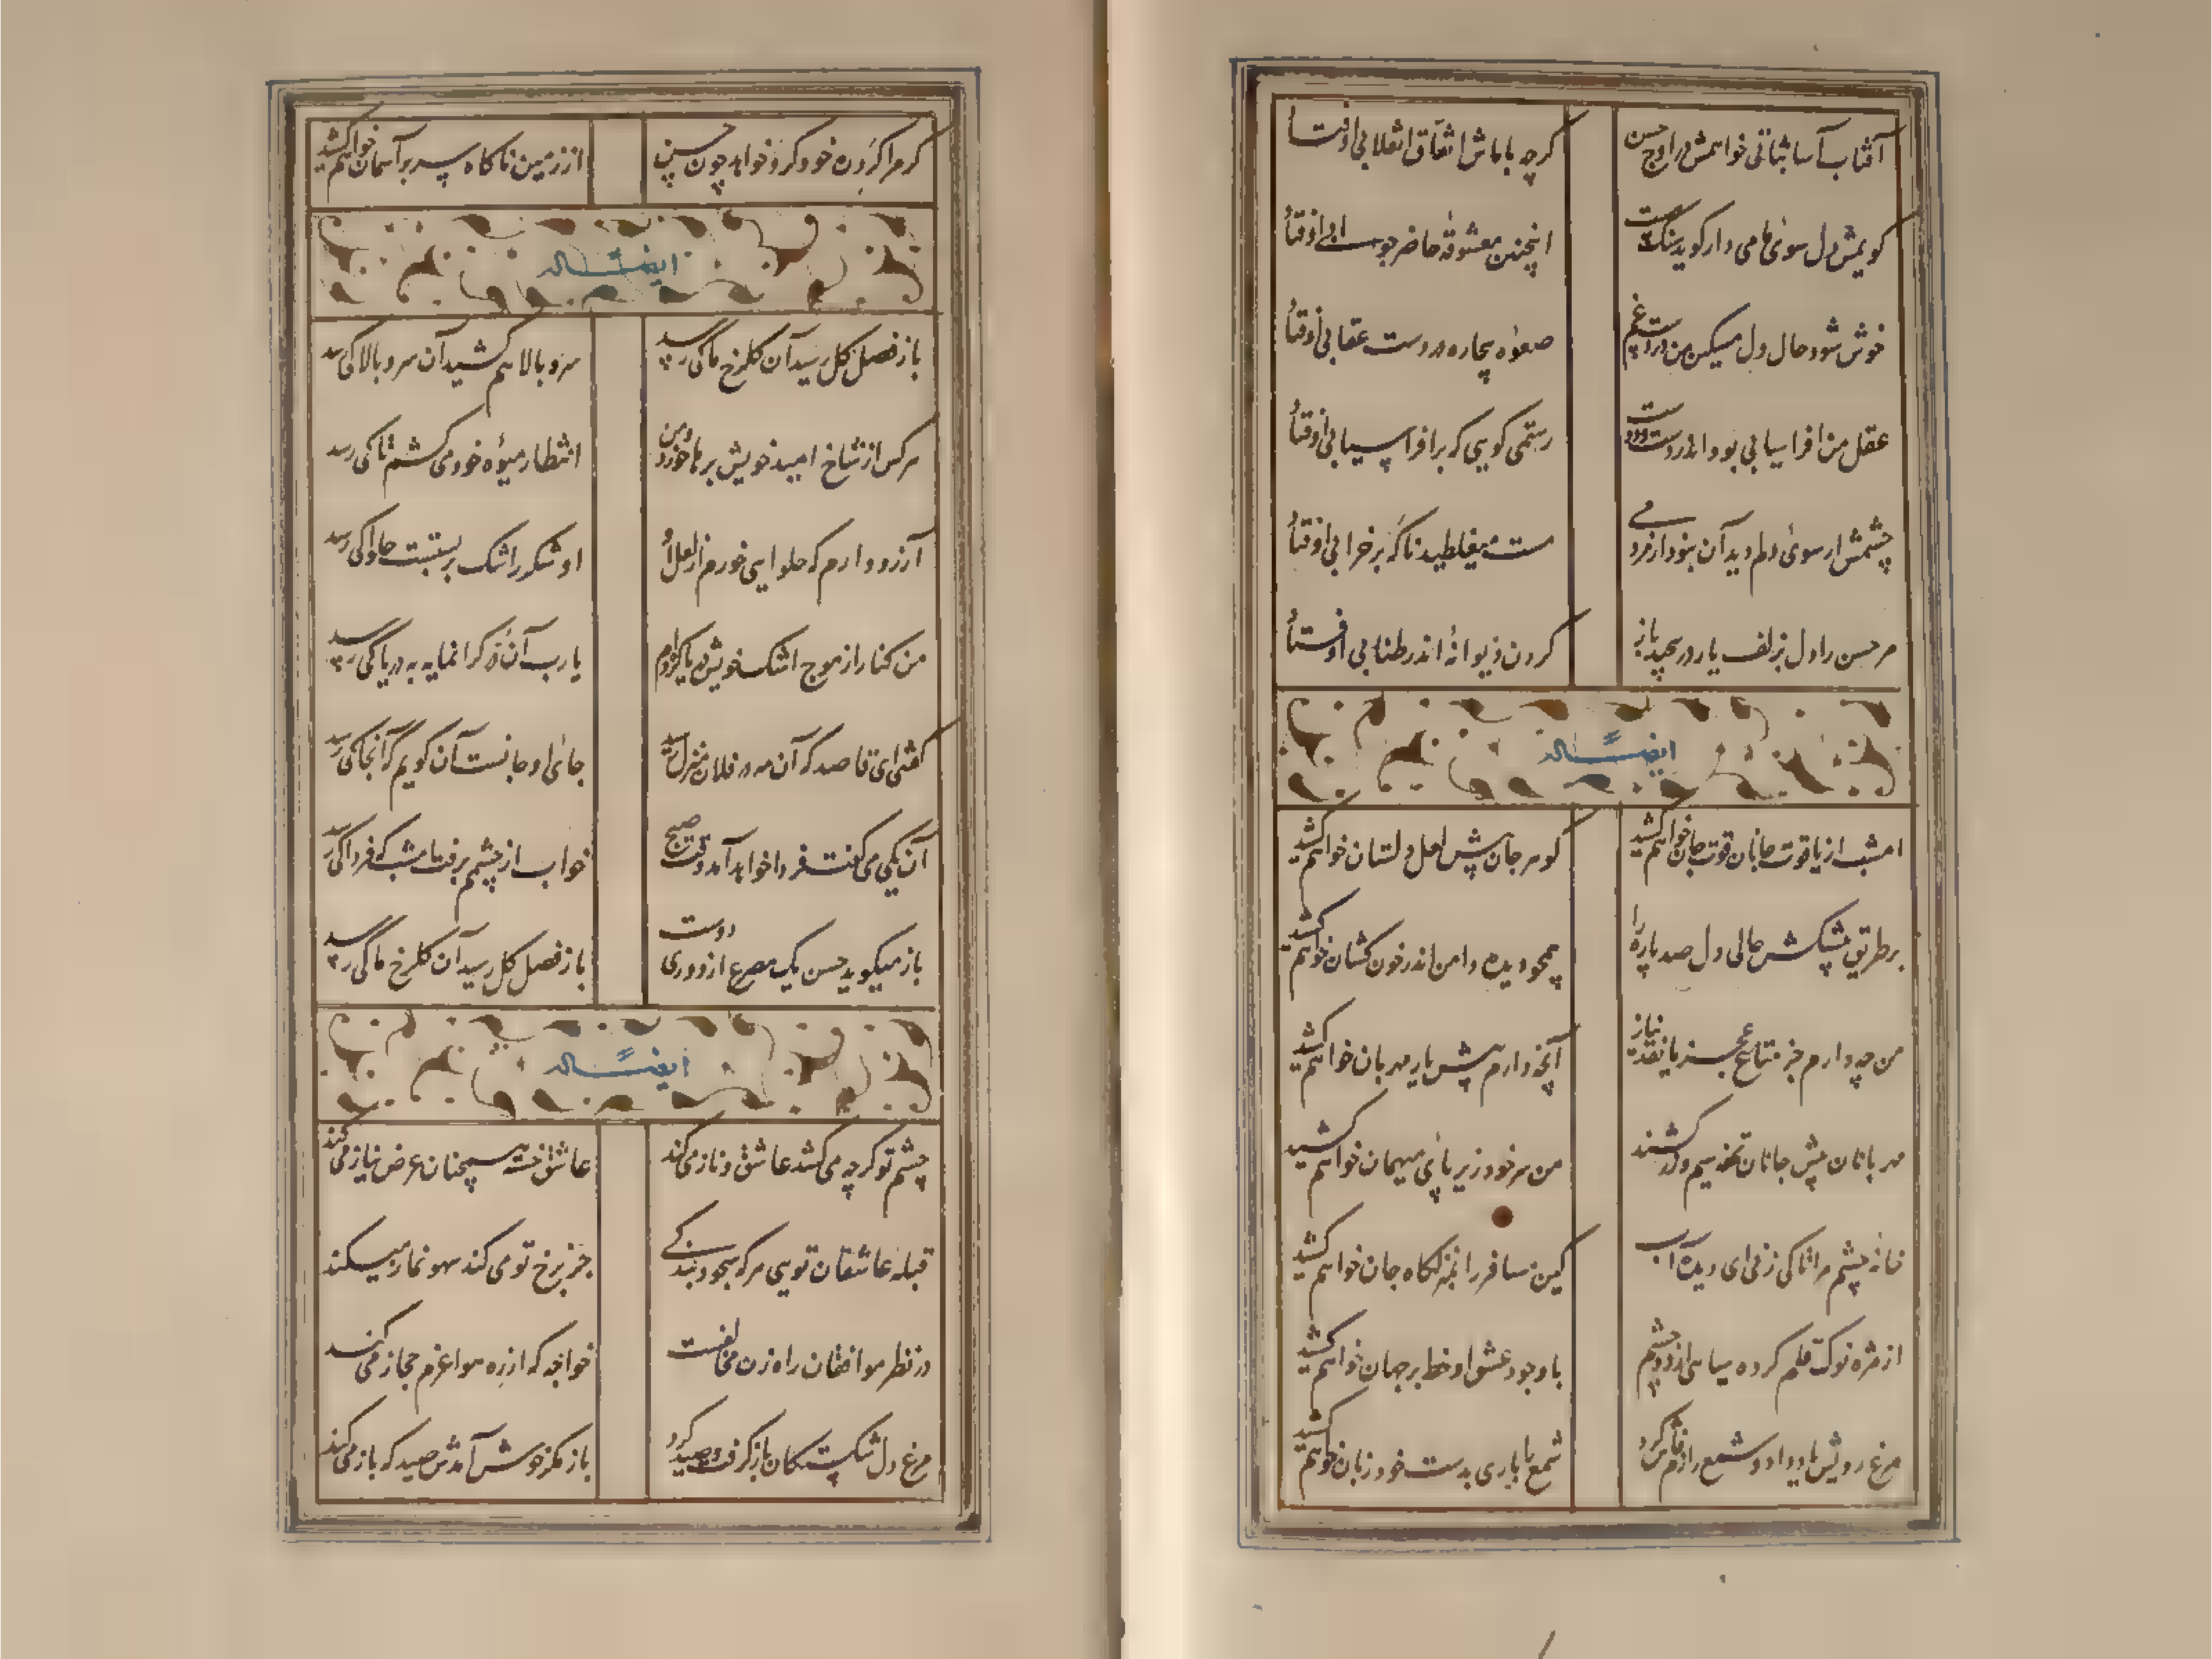 آفتاب آسا ثباتی خواهمش در اوج حسن
کرچه با ماش اتفاق انقلابی اوفتاد
کویمش دل سوی ما می دار کوید سنکست
اینچنین معشوقهٔ حاضر جوابی اوفتاد
خوش شود حال دل مسکین من در دست غم
صعوه بیچاره در دست عقابی اوفتاد
عقل من افراسیابی بود
رستمی کویی که بر افراسیابی اوفتاد
چشمش از سوی دلم دید آن نبود از مردمی
مست میغلطید ناکه بر خرابی اوفتاد
مر حسن را دل بزلف یار در پیچید باز
کردن دیوانهٔ اندر طنابی اوفتاد
ایضًا له
امشب از یاقوت جانان قوت جان خواهم کشید
کوهر جان پیش لعل دلستان خواهم کشید
بر طریق پیشکش حالی دل صد پاره را
همچو دیده دامن اندر خون کشان خواهم کشید
من چه دارم جز متاع عجز یا نقد نیاز
آنچه دارم پیش یار مهربان خواهم کشید
مهربانان پیش جانان تحفه سیم و زر کشند
من سر خود زیر پای میهمان خواهم کشید
خانهٔ چشم مرا تا کی زنی ای دیده آب
کین مسافر را بنزلکاه جان خواهم کشید
از مژه نوک قلم کرده سیاهی از دو چشم
با وجود عشق او خط بر جهان خواهم کشید
مرغ رویش داد و شمع رازم فاش کرد
شمع را باری بدست خود زبان خواهم کشید
کر مرا کرد ره خود کرد خواهد چون حسن
از زمین ناکاه سر بر آسمان خواهم کشید
ایضًا له
باز فصل کل رسید آن کلرخ ما کی رسد
سرو بالا هم کشید آن سرو بالا کی رسد
هرکس از شاخ امید خویش برها خورد و من
انتظار میوهٔ خود می کشم تا کی رسد
آرزو دارم که حلوایی خورم زان لعل
او شکر را تنک بر بستست حلوا کی رسد
من کنار از موج اشک خویش دریا کرده ام
یا رب آن در کرانمایه به دریا کی رسد
کفتی ای قاصد که آن مه در فلان منزل رسید
جای او جانست آن کویم که آنجا کی رسد
آن یکی می کفت فردا خواهد آمد وقت صبح
خواب از چشمم برفت امشب که فردا کی رسد
باز میکوید حسن یک مصرع از دوری دوست
باز فصل کل رسید آن کلرخ ما کی رسد
ایضًا له
چشم تو کرچه می کشد عاشق و ناز می کند
عاشق خسته همچنان عرض نیاز می کند
قبله عاشقان تویی هرکه سجود بندکی
جز برخ تو می کند سهو نماز میکند
در نظر موافقان راه زن مخالفست
خواجه که از ره هوا عزم حجاز می کند
مرغ دل شکستکان باز کرفت و صید کرد
باز مکر خوش آمدش صید که باز می کند